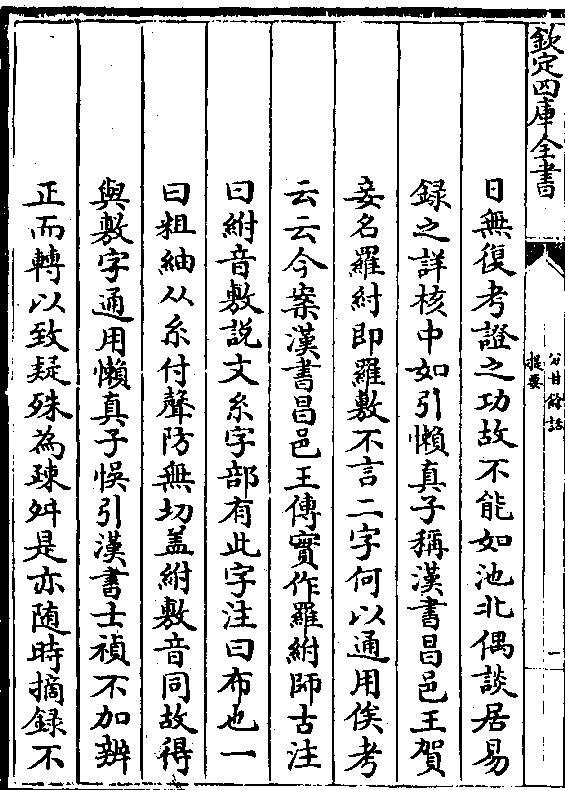 欽定四庫全書
分甘餘話
提要
一
日無復考證之功故不能如池北偶談居易
録之詳核中如引懶真子稱漢書昌邑王賀
妾名羅紨即羅敷不言二字何以通用俟考
云云今案漢書昌邑王傳實作羅紨師古注
曰紨音敷説文糸字部有此字注曰布也一
曰粗紬从糸付聲防無切盖紨敷音同故得
與敷字通用懶真子悞引漢書士禎不加辨
正而轉以致疑殊為疎舛是亦随時摘録不